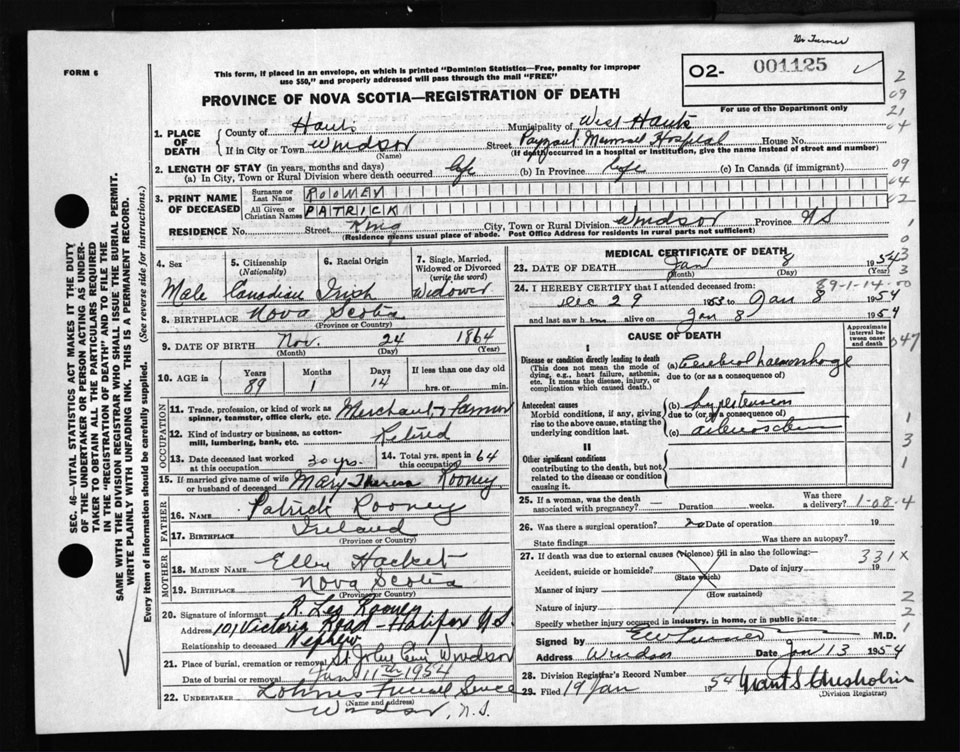 Dr Turner
FORM 6
This form, if placed in an envelope, on which is printed "Dominion Statistics—Free, penalty for improper use $50," and properly addressed will pass through the mail "FREE"
O2- 001125
For use of the Department only
PROVINCE OF NOVA SCOTIA—REGISTRATION OF DEATH
SEC. 46—VITAL STATISTICS ACT MAKES IT THE DUTY OF THE UNDERTAKER OR PERSON ACTING AS UNDERTAKER TO OBTAIN ALL THE PARTICULARS REQUIRED IN THE "REGISTRATION OF DEATH" AND TO FILE THE SAME WITH THE DIVISION REGISTRAR WHO SHALL ISSUE THE BURIAL PERMIT.
WRITE PLAINLY WITH UNFADING INK. THIS IS A PERMANENT RECORD.
Every item of information should be carefully supplied. (See reverse side for instructions.)
1. PLACE OF DEATH County of Hants Municipality of West Hants
If in City or Town Windsor (Name) Street Payzant Memorial Hospital House No.
(If death occurred in a hospital or institution, give the name instead of street and number)
2. LENGTH OF STAY (in years, months and days)
(a) In City, Town or Rural Division where death occurred life (b) In Province life (c) In Canada (if immigrant)
3. PRINT NAME OF DECEASED Surname or Last Name ROONEY
All Given or Christian Names PATRICK
RESIDENCE No. Street King City, Town or Rural Division Windsor Province N S
(Residence means usual place of abode. Post Office Address for residents in rural parts not sufficient)
4. Sex Male
5. Citizenship (Nationality) Canadian
6. Racial Origin Irish
7. Single, Married, Widowed or Divorced (write the word) Widower
8. BIRTHPLACE Nova Scotia
(Province or Country)
9. DATE OF BIRTH Nov. 24 1864
(Month) (Day) (Year)
10. AGE in Years 89 Months 1 Days 14 If less than one day old hrs. or min.
OCCUPATION
11. Trade, profession, or kind of work as spinner, teamster, office clerk, etc. Merchant & Farmer
12. Kind of industry or business, as cotton-mill, lumbering, bank, etc. Retired
13. Date deceased last worked at this occupation 30 yrs.
14. Total yrs. spent in this occupation 64
15. If married give name of wife or husband of deceased Mary Theresa Rooney
FATHER
16. NAME Patrick Rooney
17. BIRTHPLACE Ireland
(Province or Country)
MOTHER
18. MAIDEN NAME Ellen Hacket
19. BIRTHPLACE Nova Scotia
(Province or Country)
20. Signature of informant R. Leo Rooney
Address 101 Victoria Road - Halifax N.S.
Relationship to deceased Nephew
21. Place of burial, cremation or removal St John Cem Windsor
Date of burial or removal Jan 11th 1954
22. UNDERTAKER Lohnes Funeral Service
(Name and address)
Windsor, N.S.
MEDICAL CERTIFICATE OF DEATH
23. DATE OF DEATH Jan 8 1954
(Month) (Day) (Year)
24. I HEREBY CERTIFY that I attended deceased from: 89-1-14-00
Dec 29 1953 to Jan 8 1954
and last saw him alive on Jan 8 1954
CAUSE OF DEATH
Approximate interval between onset and death
I
Disease or condition directly leading to death
(This does not mean the mode of dying, e.g., heart failure, asthenia, etc. It means the disease, injury, or complication which caused death.)
(a) Cerebral haemorrhage
due to (or as a consequence of)
Antecedent causes
Morbid conditions, if any, giving rise to the above cause, stating the underlying condition last.
(b) hypertension
due to (or as a consequence of)
(c)
II
Other significant conditions
contributing to the death, but not related to the disease or condition causing it.
25. If a woman, was the death associated with pregnancy? — Duration weeks. Was there a delivery? 1-08-4
26. Was there a surgical operation? no Date of operation 19
State findings Was there an autopsy?
27. If death was due to external causes (violence) fill in also the following: 331X
Accident, suicide or homicide? (State which) Date of injury 19
Manner of injury (How sustained)
Nature of injury
Specify whether injury occurred in industry, in home, or in public place
Signed by E W Turner M.D.
Address Windsor Date Jan 13 1954
28. Division Registrar's Record Number
29. Filed 19 Jan 1954 Grant S Chisholm
(Division Registrar)
2
09
21
04
09
04
02
1
0
3
3
047
1
3
1
2
2
1